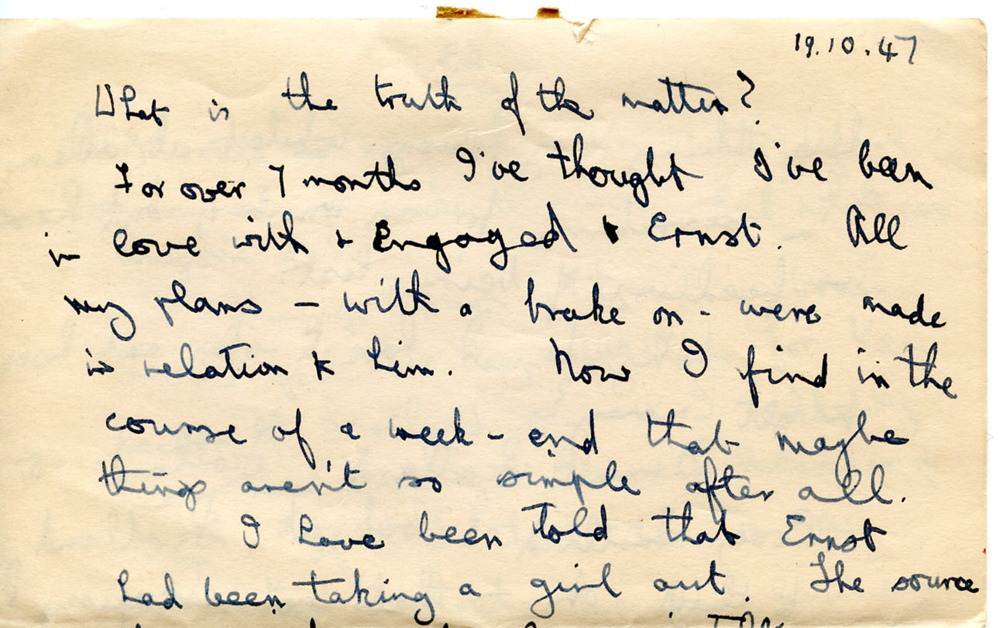 19.10.47
What is the truth of the matter?
For over 7 months I've thought I've been
in love with & Engaged to Ernst. All
my plans – with a brake on – were made
in relation to him. Now I find in the
course of a week-end that maybe
things aren't so simple after all.
I have been told that Ernst
had been taking a girl out. The source